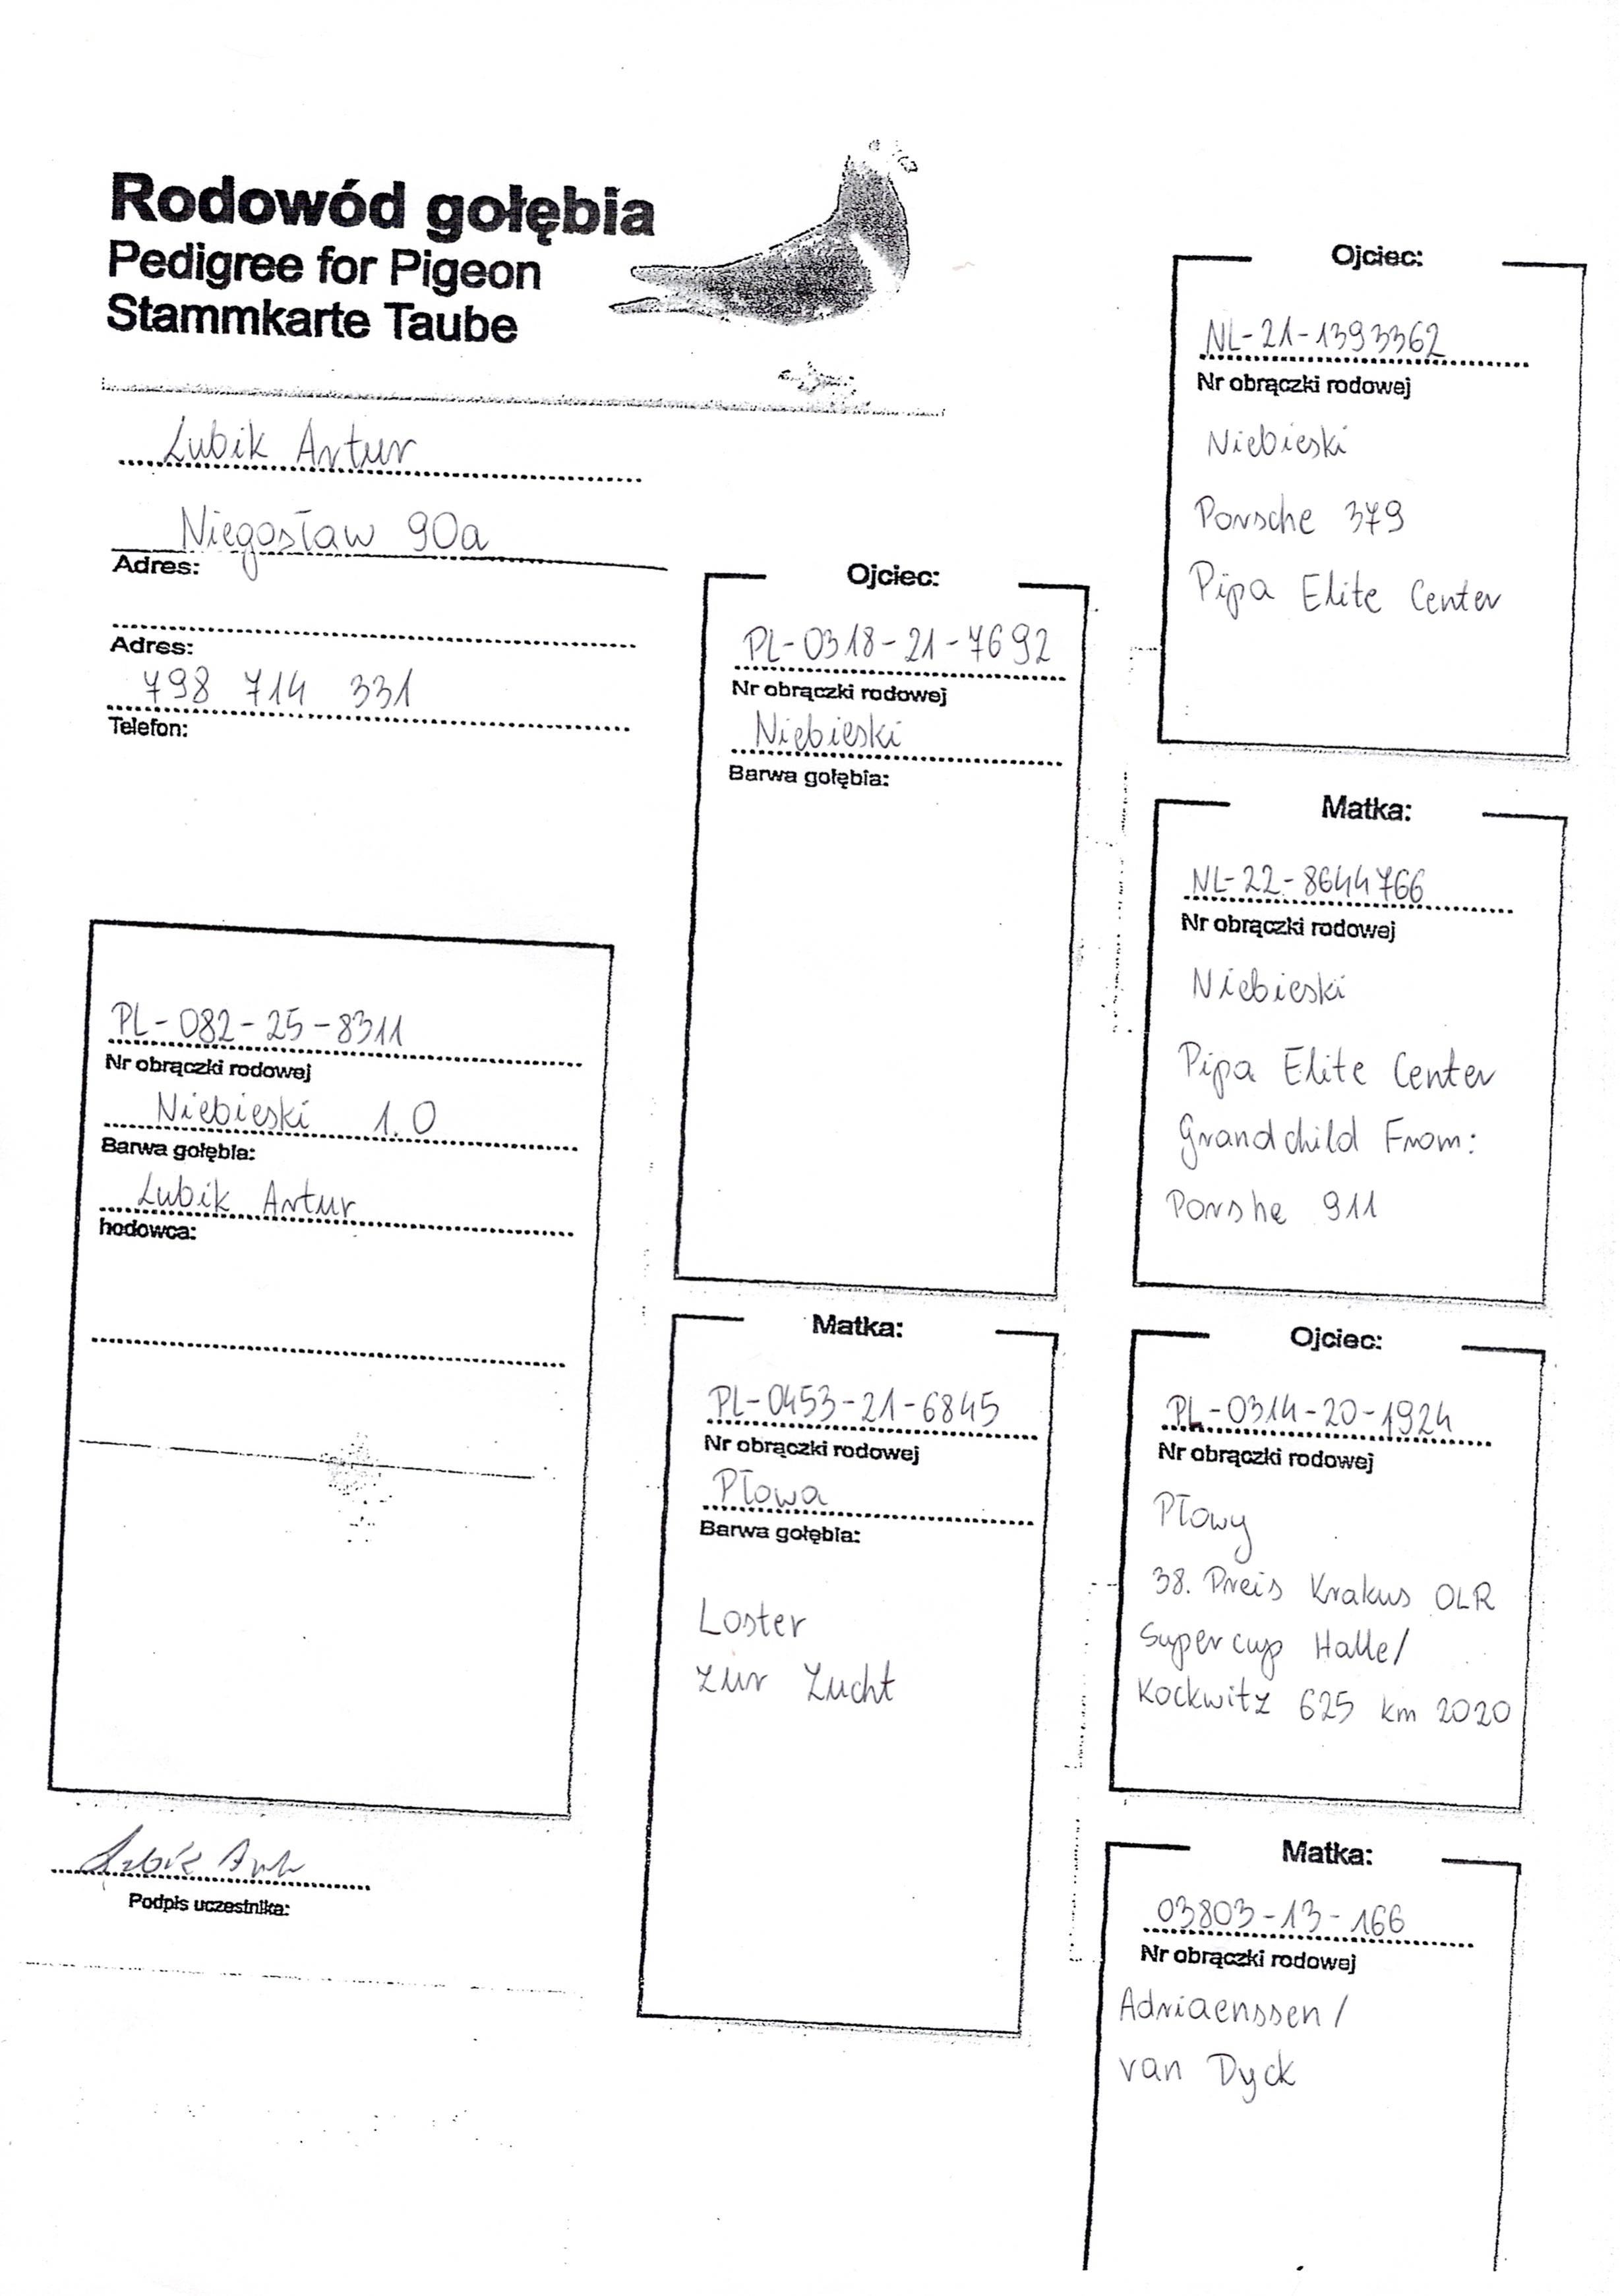 Rodowód gołębia
Pedigree for Pigeon
Stammkarte Taube
Lubik Artur
Niegosław 90a
Adres:
Adres:
798 714 331
Telefon:
PL-082-25-8311
Nr obrączki rodowej
Niebieski 1.0
Barwa gołębia:
Lubik Artur
hodowca:
Podpis uczestnika:
Ojciec:
PL-0318-21-7692
Nr obrączki rodowej
Niebieski
Barwa gołębia:
Matka:
PL-0453-21-6845
Nr obrączki rodowej
Płowa
Barwa gołębia:
Loster
zur Zucht
Ojciec:
NL-21-1393362
Nr obrączki rodowej
Niebieski
Porsche 379
Pipa Elite Center
Matka:
NL-22-8644766
Nr obrączki rodowej
Niebieski
Pipa Elite Center
Grandchild From:
Porshe 911
Ojciec:
PL-0314-20-1924
Nr obrączki rodowej
Płowy
38. Preis Krakus OLR
Supercup Halle/
Kockwitz 625 km 2020
Matka:
03803-13-166
Nr obrączki rodowej
Adriaenssen/
van Dyck